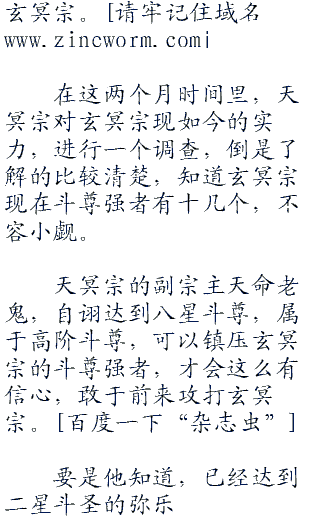 玄冥宗。[请牢记住域名
www.zincworm.com|
在这两个月时间里，天
冥宗对玄冥宗现如今的实
力，进行一个调查，倒是了
解的比较清楚，知道玄冥宗
现在斗尊强者有十几个，不
容小觑。
天冥宗的副宗主天命老
鬼，自诩达到八星斗尊，属
于高阶斗尊，可以镇压玄冥
宗的斗尊强者，才会这么有
信心，敢于前来攻打玄冥
宗。[百度一下“杂志虫”]
要是他知道，已经达到
二星斗圣的弥乐